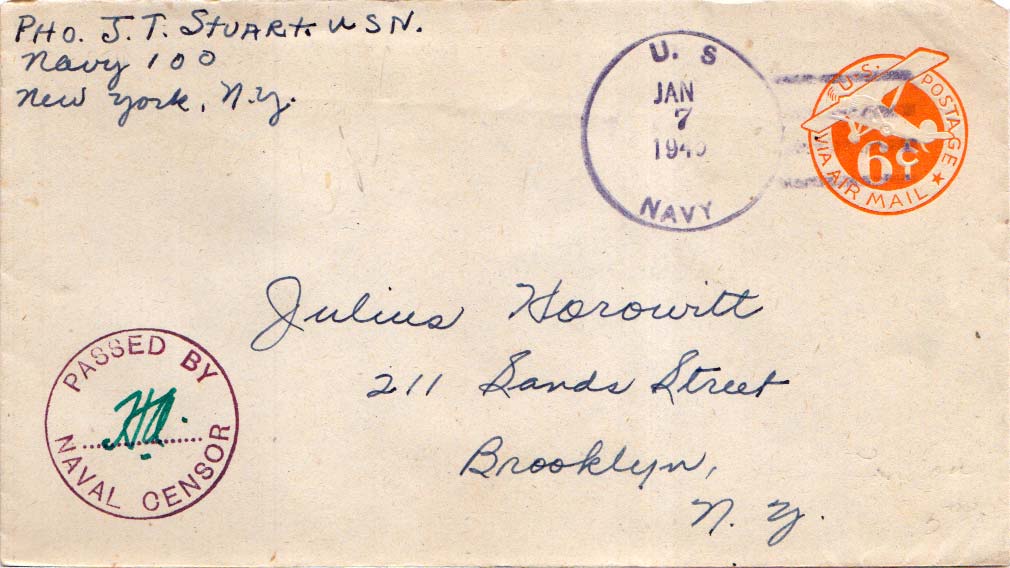 PHO. J. T. STUART. USN.
Navy 100
New York, N.Y.
U. S
JAN
7
1945
NAVY
U.S. POSTAGE
6¢
VIA AIR MAIL
Julius Horowitt
211 Sands Street
Brooklyn,
N. Y.
PASSED BY
NAVAL CENSOR